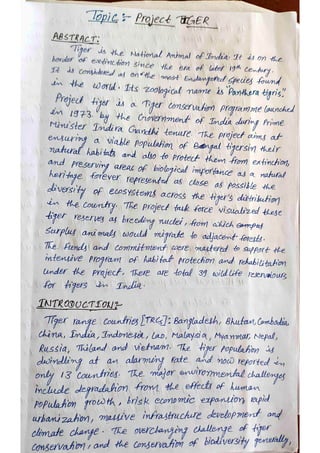 Topic :- Project TIGER
ABSTRACT:-
Tiger is the National Animal of India. It is on the
border of extinction since the era of later 19th century.
It is considered as on the most Endangered Species found
in the world. Its zoological name is "Panthera tigris".
Project tiger is a Tiger conservation programme launched
in 1973 by the Government of India during Prime
Minister Indira Gandhi tenure. The project aims at
ensuring a viable population of Bengal tigers in their
natural habitats and also to protect them from extinction,
and preserving areas of biological importance as a natural
heritage forever represented as close as possible the
diversity of ecosystems across the tiger's distribution
in the country. The project task force visualized these
tiger reserves as breeding nuclei, from which
surplus animals would migrate to adjacent forests.
The Funds and commitment were mastered to support the
intensive program of habitat protection and rehabilitation
under the project. There are total 39 wild life
for tigers in India.
INTRODUCTION:-
Tiger range countries [TRCs]: Bangladesh, Bhutan, Cambodia,
China, India, Indonesia, Lao, Malaysia, Myanmar, Nepal,
Russia, Thiland and Vietnam. The tiger population is
dwindling at an alarming rate and now reported in
only 13 Countries. The major environmental challenges
include degradation from the effects of human
population growth, brisk economic expansion, rapid
urbanization, massive infrastructure development and
climate change. The overchanging challenge of tiger
conservation, and the conservation of biodiversity generally,